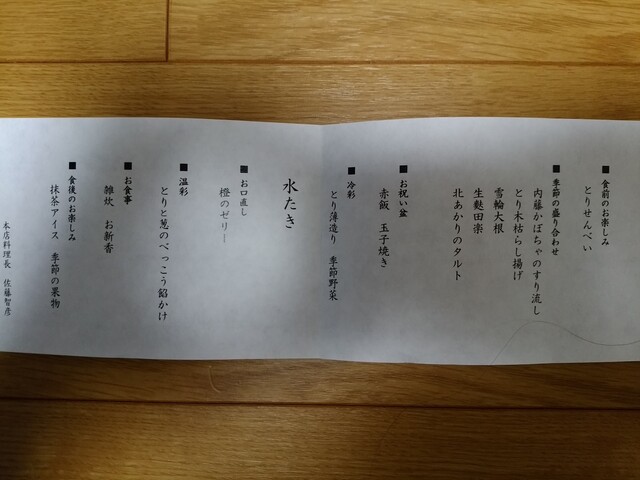 ■食前のお楽しみ
とりせんべい
■季節の盛り合わせ
内藤かぼちゃのすり流し
とり木枯らし揚げ
雪輪大根
生麩田楽
北あかりのタルト
■お祝い盆
赤飯 玉子焼き
■冷彩
とり薄造り 季節野菜
水たき
■お口直し
橙のゼリー
■温彩
とりと葱のべっこう餡かけ
■お食事
雑炊 お新香
■食後のお楽しみ
抹茶アイス 季節の果物
本店料理長 佐藤智彦